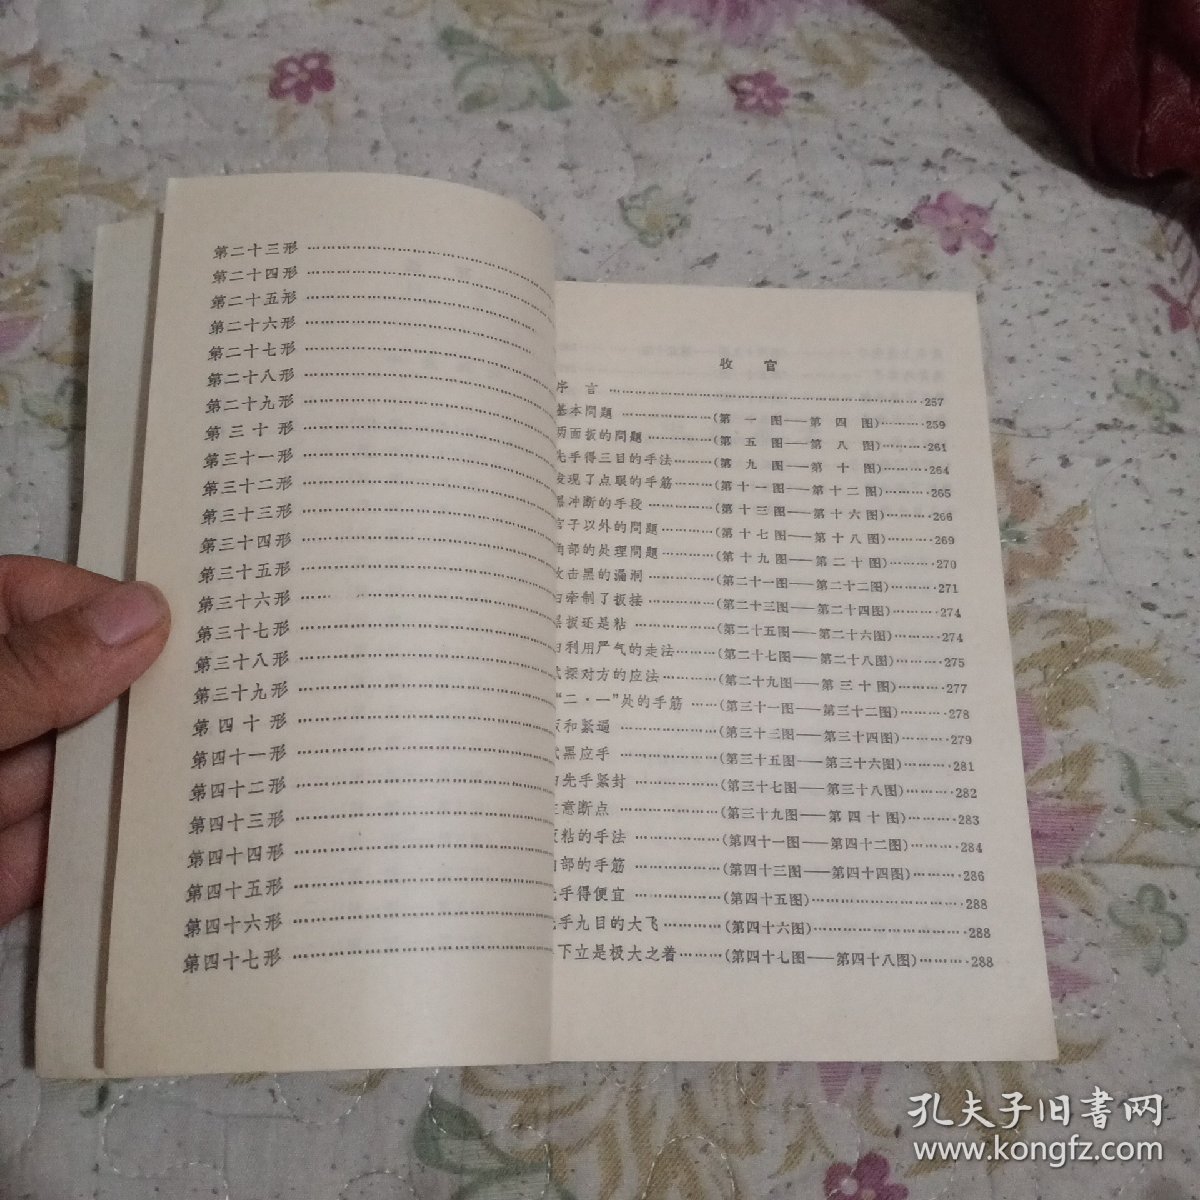 第二十三形
第二十四形
第二十五形
第二十六形
第二十七形
第二十八形
第二十九形
第三十形
第三十一形
第三十二形
第三十三形
第三十四形
第三十五形
第三十六形
第三十七形
第三十八形
第三十九形
第四十形
第四十一形
第四十二形
第四十三形
第四十四形
第四十五形
第四十六形
第四十七形
收官
序言 257
基本问题 (第一图——第四图) 259
两面扳的问题 (第五图——第八图) 261
先手得三目的手法 (第九图——第十图) 264
发现了点眼的手筋 (第十一图——第十二图) 265
冲断的手段 (第十三图——第十六图) 266
官子以外的问题 (第十七图——第十八图) 269
角部的处理问题 (第十九图——第二十图) 270
攻击黑的漏洞 (第二十一图——第二十二图) 271
白牵制了扳接 (第二十三图——第二十四图) 274
扳还是粘 (第二十五图——第二十六图) 274
白利用严气的走法 (第二十七图——第二十八图) 275
试探对方的应法 (第二十九图——第三十图) 277
“二·一”处的手筋 (第三十一图——第三十二图) 278
和紧逼 (第三十三图——第三十四图) 279
试黑应手 (第三十五图——第三十六图) 281
白先手紧封 (第三十七图——第三十八图) 282
注意断点 (第三十九图——第四十图) 283
扳粘的手法 (第四十一图——第四十二图) 284
角部的手筋 (第四十三图——第四十四图) 286
先手得便宜 (第四十五图) 288
先手九目的大飞 (第四十六图) 288
下立是极大之着 (第四十七图——第四十八图) 288
孔夫子旧书网
www.kongfz.com